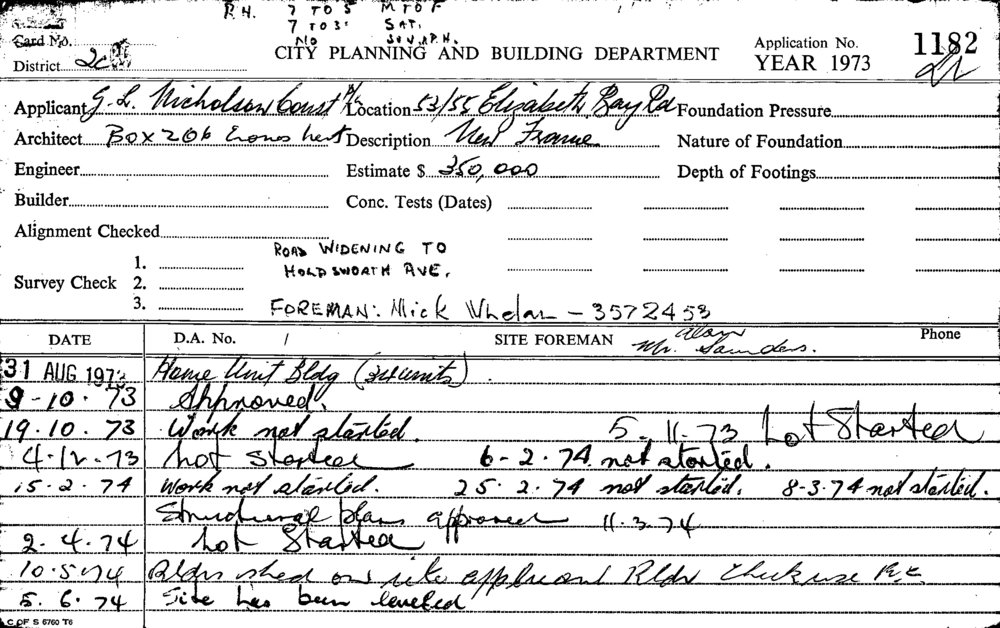 R.H. 7 TO 5 M TO F
7 TO 3: SAT.
NO SUN. P.H.
Card No.
District 2c
CITY PLANNING AND BUILDING DEPARTMENT
Application No. 1182
YEAR 1973
Applicant G. L. Nicholson Const P/L Location 53/55 Elizabeth Bay Rd Foundation Pressure
Architect Box 206 Description New Frame Nature of Foundation
Engineer Estimate $ 350,000 Depth of Footings
Builder Conc. Tests (Dates)
Alignment Checked
ROAD WIDENING TO
HOLDSWORTH AVE.
Survey Check 1.
2.
3.
FOREMAN: Mick Whelan - 3572453
DATE D.A. No. / SITE FOREMAN Alan Mr. Saunders. Phone
31 AUG 1973 Home Unit Bldg (34 units).
9-10.73 Approved.
19.10.73 Work not started. 5.11.73 Not Started
4.12.73 Not Started 6-2.74 not started.
15.2.74 Work not started. 25.2.74 not started. 8-3.74 not started.
Structural plans approved 11.3.74
2.4.74 Not Started
10.5.74 Bldrs shed on site applicant Bldr
5.6.74 Site has been levelled
C OF S 6760 T6